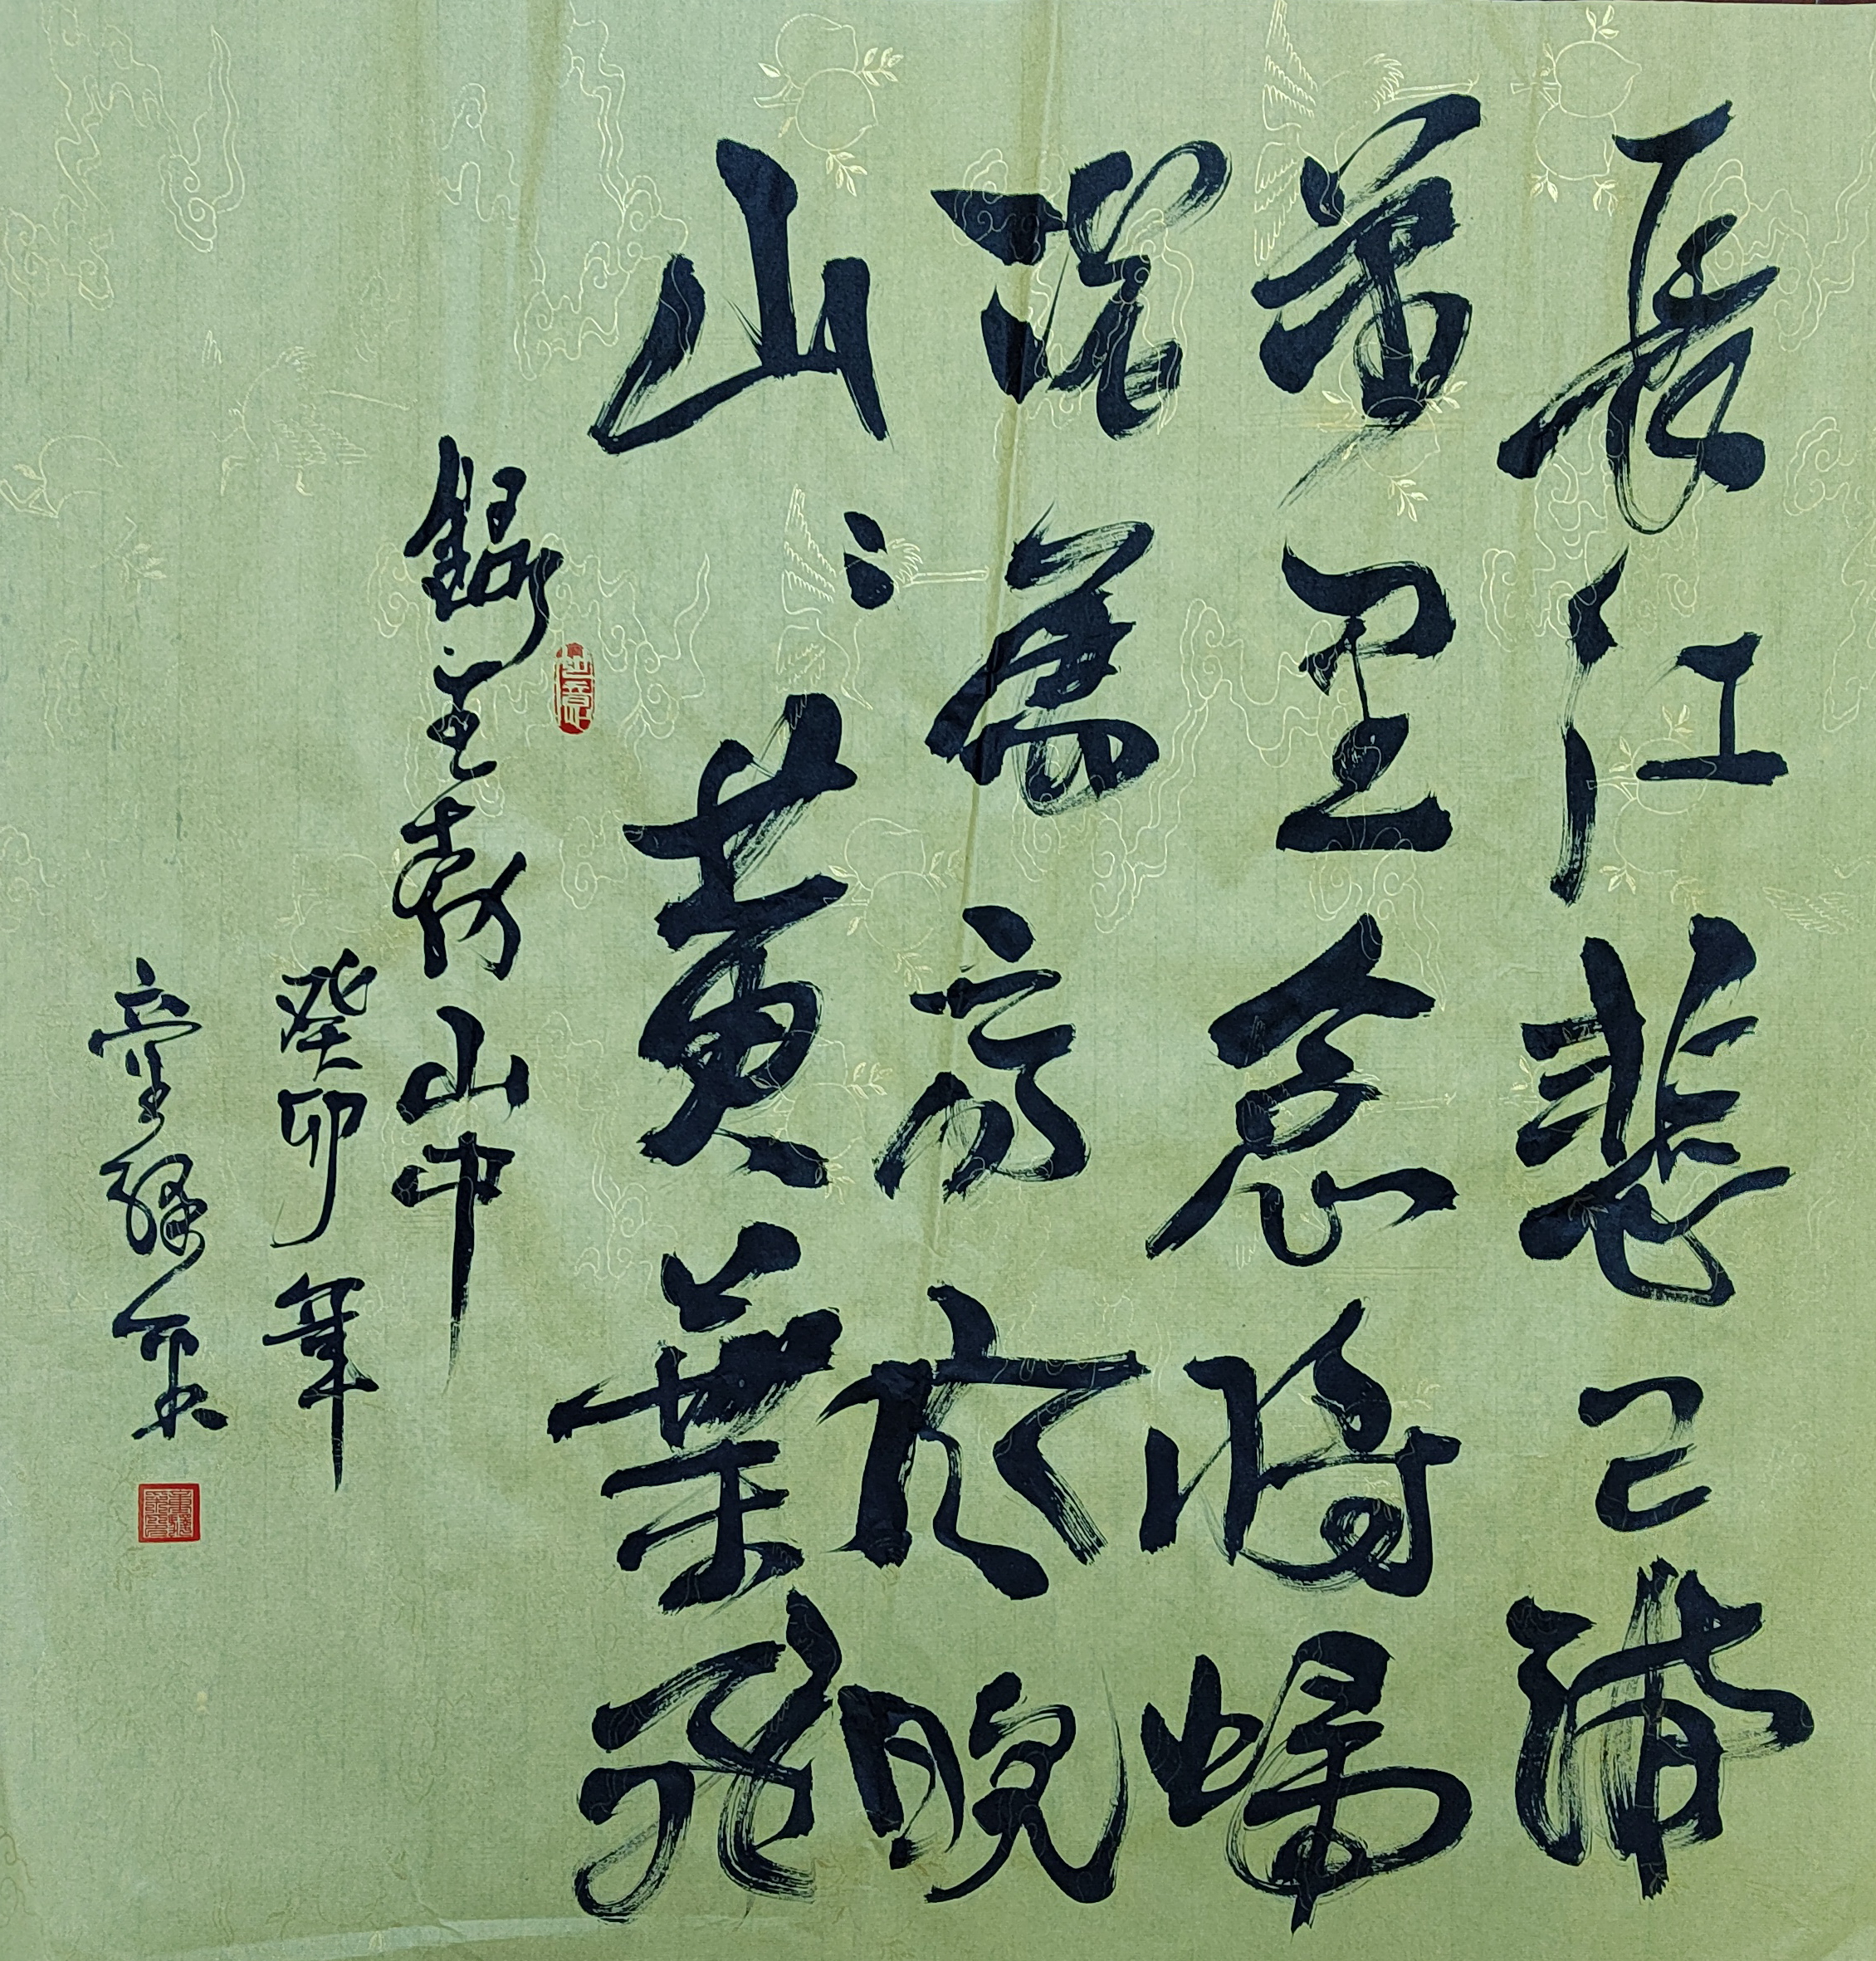 長江悲已滯
萬里念将歸
况属高風晚
山〻黄葉飛
錄王勃山中
癸卯年
童